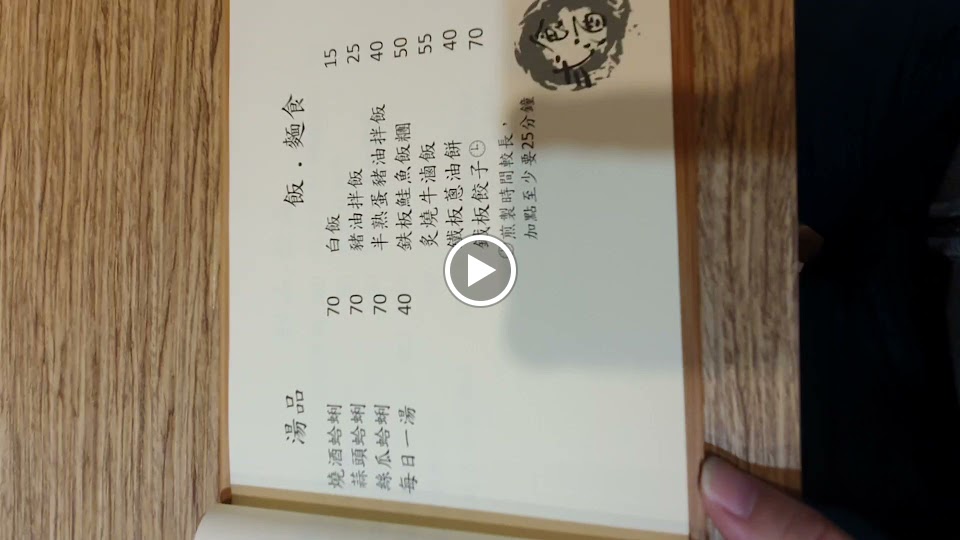 湯品
燒酒蛤蜊 70
蒜頭蛤蜊 70
絲瓜蛤蜊 70
每日一湯 40
飯．麵食
白飯 15
豬油拌飯 25
半熟蛋豬油拌飯 40
鉄板鮭魚飯糰 50
炙燒牛滷飯 55
鐵板蔥油餅 40
鐵板餃子 70
煎製時間較長、
加點至少要25分鐘